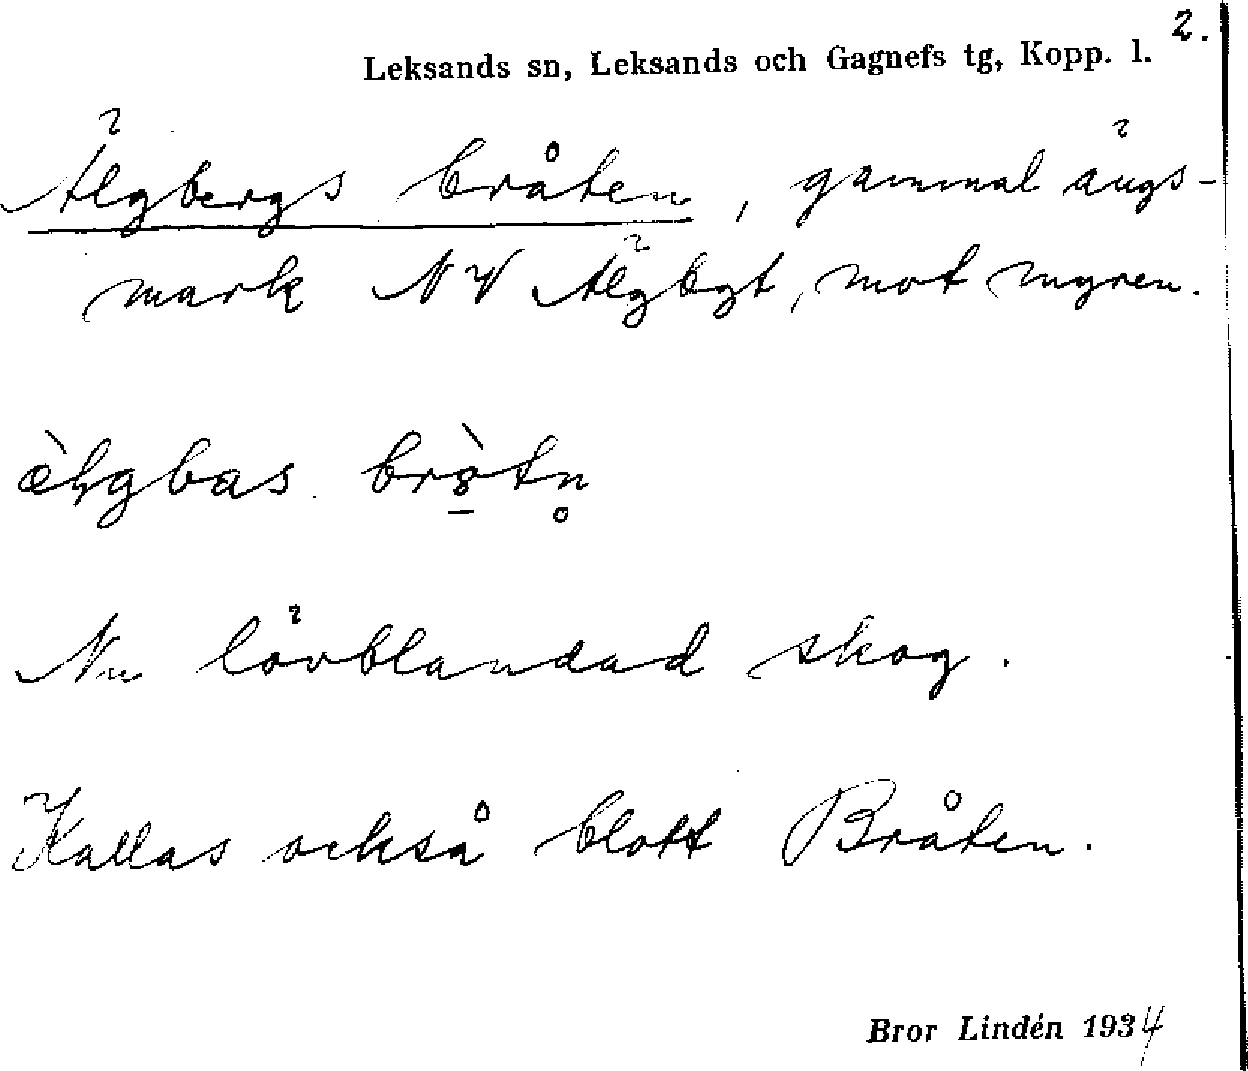 2.
Leksands sn, Leksands och Gagnefs tg, Kopp. l.
Älgbergs bråten, gammal ängs-
mark NV Älgbgt, mot myren.
Nu lövblandad skog.
Kallas också blott Bråten.
Bror Lindén 1934